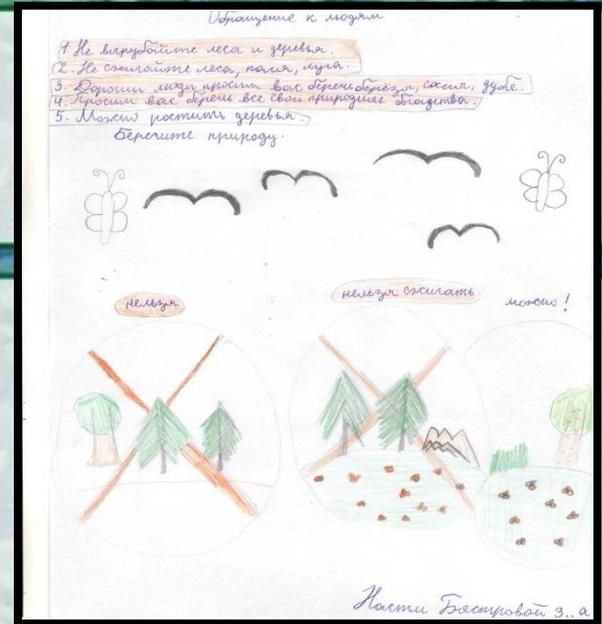 Обращение к людям
1. Не вырубайте леса и деревья.
2. Не сжигайте леса, поля, луга.
3. Дорогии люди просим вас беречь берёзы, сосны, дубы.
4. Просим вас беречь все свои природные богадства.
5. Можно ростить деревья.
Берегите природу.
нельзя
нельзя сжигать
можно!
Насти Быстровой 3.. а